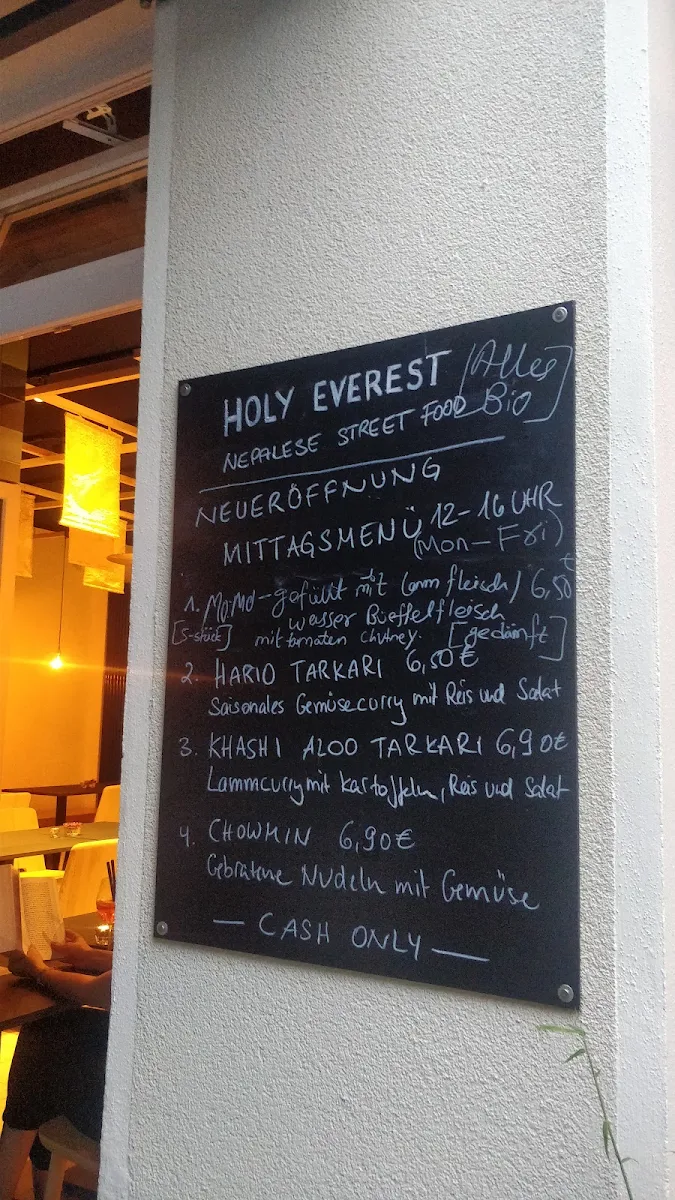 HOLY EVEREST [Alles
NEPALESE STREET FOOD Bio]
NEUERÖFFNUNG
MITTAGSMENÜ 12-16 UHR
(Mon-Fri)
1. Mo:Mo-gefüllt mit Lammfleisch/ 6,50 €
wasser Büeffelfleisch
[5-stück] mit tomaten chutney. [gedämft]
2. HARIO TARKARI 6,50€
Saisonales Gemüsecurry mit Reis und Salat
3. KHASHI ALOO TARKARI 6,90€
Lammcurry mit Kartoffeln, Reis und Salat
4. CHOWMIN 6,90€
Gebratene Nudeln mit Gemüse
— CASH ONLY —